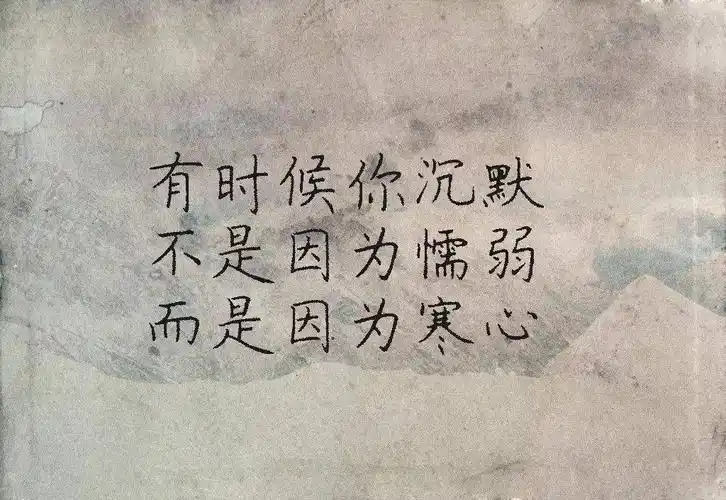 有时候你沉默
不是因为懦弱
而是因为寒心